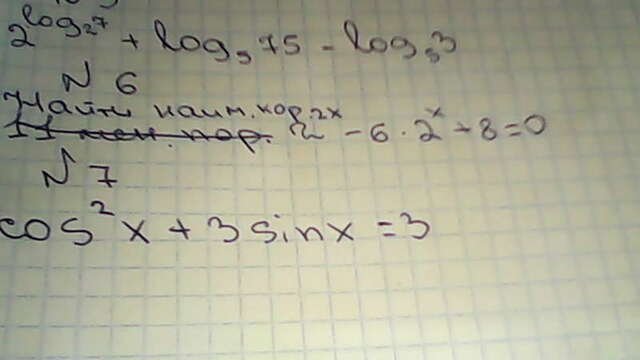 2^(log₂7) + log₅75 - log₅3
N 6
Найти наим. кор. 2^(2x) - 6 · 2^x + 8 = 0
N 7
cos²x + 3sinx = 3